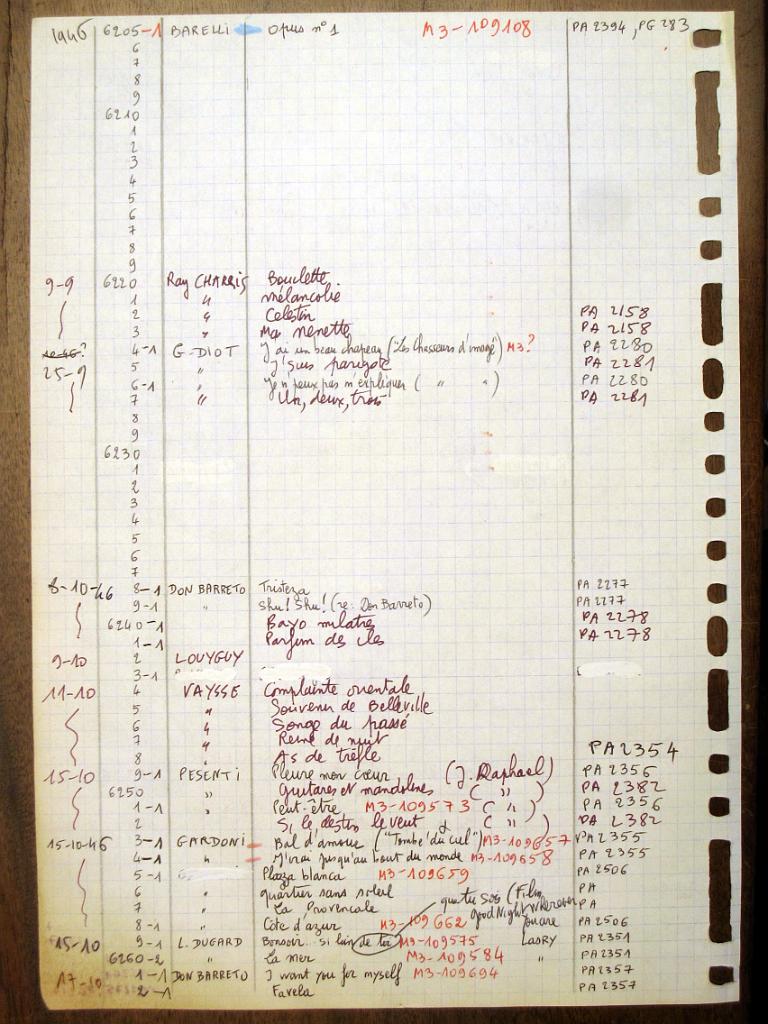 1946 6205-1 BARELLI Opus n°1 M3-109108 PA 2394, PG 283
6
7
8
9
6210
1
2
3
4
5
6
7
8
9
9-9 6220 Ray CHARRIS Bouclette
1 " mélancolie
2 " Celestin PA 2158
3 " Ma nenette PA 2158
4-1 G. DIOT J'ai un beau chapeau ("Les Chasseurs d'image") M3? PA 2280
25-9 5 " J'suis parigote PA 2281
6-1 " Je n'peux pas m'expliquer ( " " ) PA 2280
7 " Un, deux, trois PA 2281
8
9
6230
1
2
3
4
5
6
7
8-10-46 8-1 DON BARRETO Tristeza PA 2277
9-1 " Shu! Shu! (re: Don Barreto) PA 2277
6240-1 Bayo mulatres PA 2278
1-1 Parfum des iles PA 2278
9-10 2 LOUYGUY
3-1
11-10 4 VAYSSE Complainte orientale
5 " Souvenir de Belleville
6 " Songe du passé
7 " Reine de nuit
8 " As de trèfle PA 2354
15-10 9-1 PESENTI Pleure mon cœur (J. Raphael) PA 2356
6250 " Guitares et mandolines ( " ) PA 2382
1-1 " Peut-être M3-109573 ( " ) PA 2356
2 Si le destin le veut ( " ) PA 2382
15-10-46 3-1 GARDONI Bal d'amour ("Tombé du ciel") M3-109657 PA 2355
4-1 " J'irai jusqu'au bout du monde M3-109658 PA 2355
5-1 Plaza blanca M3-109659 PA 2506
6 " quartier sans soleil PA
7 " La Provencale PA
8-1 " Côte d'azur M3-109662 PA 2506
que tu sois (Film Good Night Wherever you are
15-10 9-1 L. DUGARD Bonsoir si loin de toi M3-109575 LASRY PA 2351
6260-2 " La mer M3-109584 " PA 2351
17-10 1-1 DON BARRETO I want you for myself M3-109694 PA 2357
2-1 Favela PA 2357